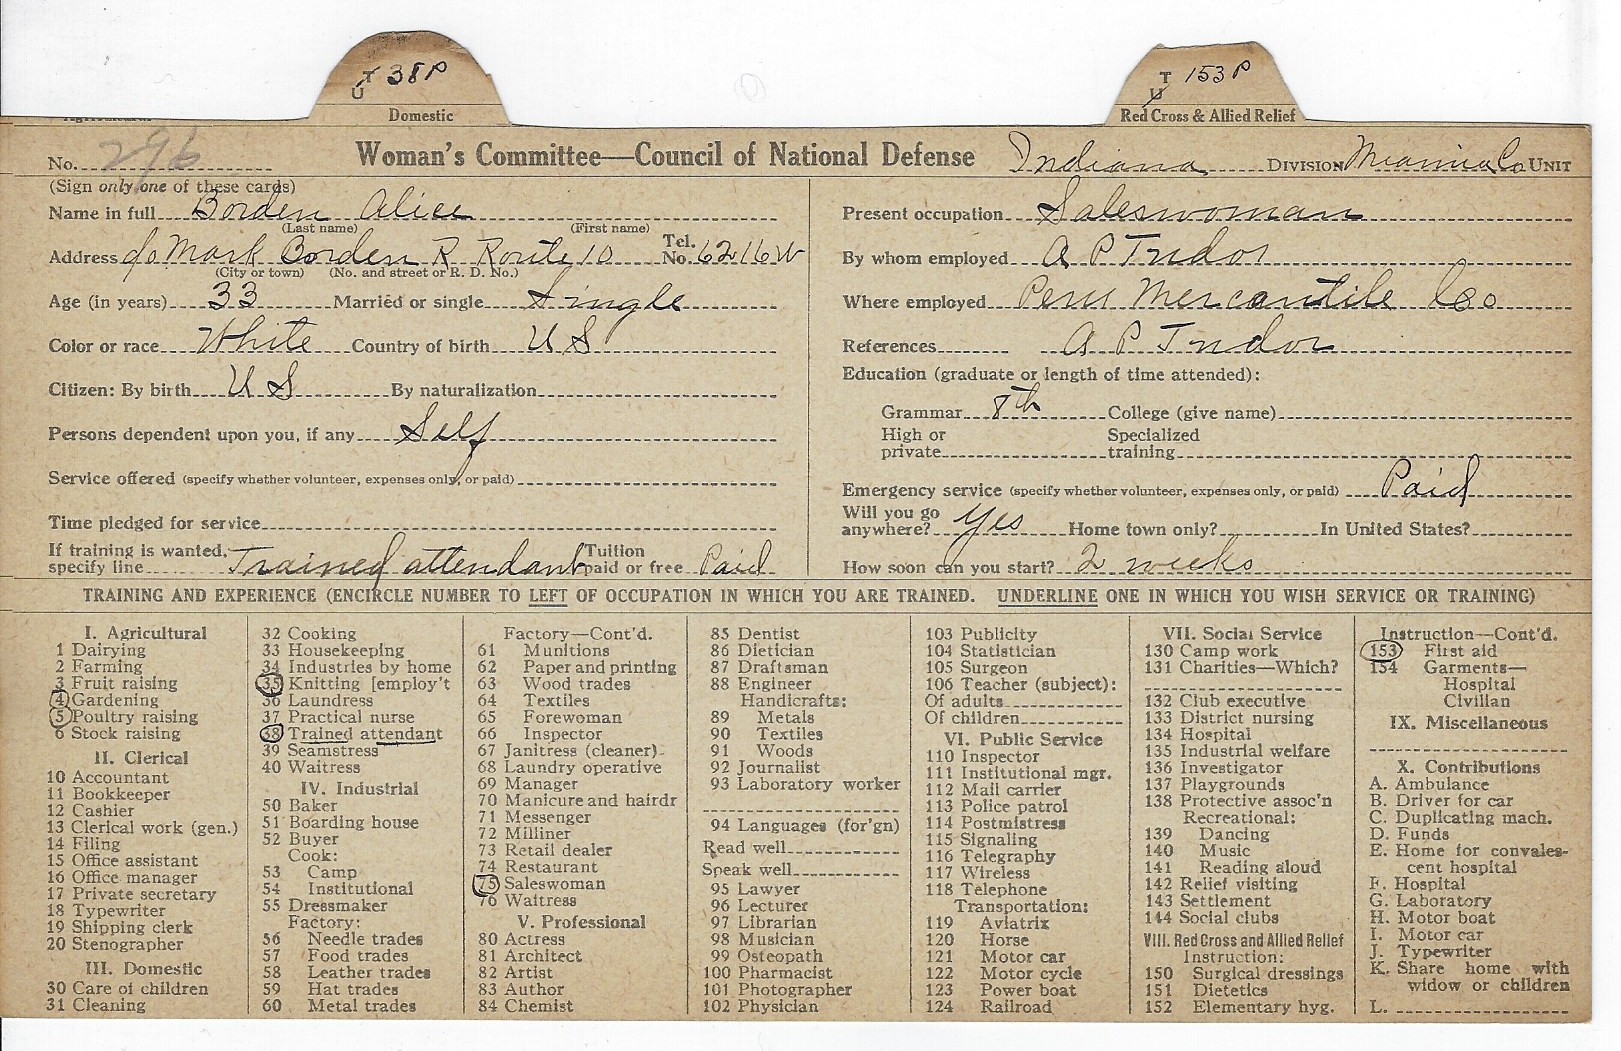 T 38 P
U
Domestic
T 153 P
U
Red Cross & Allied Relief
No. 296
Woman's Committee—Council of National Defense
Indiana DIVISION Miamia Co UNIT
(Sign only one of these cards)
Name in full Borden Alice
(Last name) (First name)
Address c/o Mark Borden R Route 10 Tel. No. 6216W
(City or town) (No. and street or R. D. No.)
Age (in years) 33 Married or single Single
Color or race White Country of birth U S
Citizen: By birth U S By naturalization
Persons dependent upon you, if any Self
Service offered (specify whether volunteer, expenses only, or paid)
Time pledged for service
If training is wanted, specify line Trained attendant Tuition paid or free Paid
Present occupation Saleswoman
By whom employed A P Tudor
Where employed Peru Mercantile Co
References A P Tudor
Education (graduate or length of time attended):
Grammar 8th College (give name)
High or private Specialized training
Emergency service (specify whether volunteer, expenses only, or paid) Paid
Will you go anywhere? Yes Home town only? In United States?
How soon can you start? 2 weeks
TRAINING AND EXPERIENCE (ENCIRCLE NUMBER TO LEFT OF OCCUPATION IN WHICH YOU ARE TRAINED. UNDERLINE ONE IN WHICH YOU WISH SERVICE OR TRAINING)
I. Agricultural
1 Dairying
2 Farming
3 Fruit raising
4 Gardening
5 Poultry raising
6 Stock raising
II. Clerical
10 Accountant
11 Bookkeeper
12 Cashier
13 Clerical work (gen.)
14 Filing
15 Office assistant
16 Office manager
17 Private secretary
18 Typewriter
19 Shipping clerk
20 Stenographer
III. Domestic
30 Care of children
31 Cleaning
32 Cooking
33 Housekeeping
34 Industries by home
35 Knitting [employ't
36 Laundress
37 Practical nurse
38 Trained attendant
39 Seamstress
40 Waitress
IV. Industrial
50 Baker
51 Boarding house
52 Buyer
Cook:
53 Camp
54 Institutional
55 Dressmaker
Factory:
56 Needle trades
57 Food trades
58 Leather trades
59 Hat trades
60 Metal trades
Factory—Cont'd.
61 Munitions
62 Paper and printing
63 Wood trades
64 Textiles
65 Forewoman
66 Inspector
67 Janitress (cleaner)
68 Laundry operative
69 Manager
70 Manicure and hairdr
71 Messenger
72 Milliner
73 Retail dealer
74 Restaurant
75 Saleswoman
76 Waitress
V. Professional
80 Actress
81 Architect
82 Artist
83 Author
84 Chemist
85 Dentist
86 Dietician
87 Draftsman
88 Engineer
Handicrafts:
89 Metals
90 Textiles
91 Woods
92 Journalist
93 Laboratory worker
94 Languages (for'gn)
Read well
Speak well
95 Lawyer
96 Lecturer
97 Librarian
98 Musician
99 Osteopath
100 Pharmacist
101 Photographer
102 Physician
103 Publicity
104 Statistician
105 Surgeon
106 Teacher (subject):
Of adults
Of children
VI. Public Service
110 Inspector
111 Institutional mgr.
112 Mail carrier
113 Police patrol
114 Postmistress
115 Signaling
116 Telegraphy
117 Wireless
118 Telephone
Transportation:
119 Aviatrix
120 Horse
121 Motor car
122 Motor cycle
123 Power boat
124 Railroad
VII. Social Service
130 Camp work
131 Charities—Which?
132 Club executive
133 District nursing
134 Hospital
135 Industrial welfare
136 Investigator
137 Playgrounds
138 Protective assoc'n
Recreational:
139 Dancing
140 Music
141 Reading aloud
142 Relief visiting
143 Settlement
144 Social clubs
VIII. Red Cross and Allied Relief
Instruction:
150 Surgical dressings
151 Dietetics
152 Elementary hyg.
Instruction—Cont'd.
153 First aid
154 Garments—
Hospital
Civilian
IX. Miscellaneous
X. Contributions
A. Ambulance
B. Driver for car
C. Duplicating mach.
D. Funds
E. Home for convales-
cent hospital
F. Hospital
G. Laboratory
H. Motor boat
I. Motor car
J. Typewriter
K. Share home with
widow or children
L.